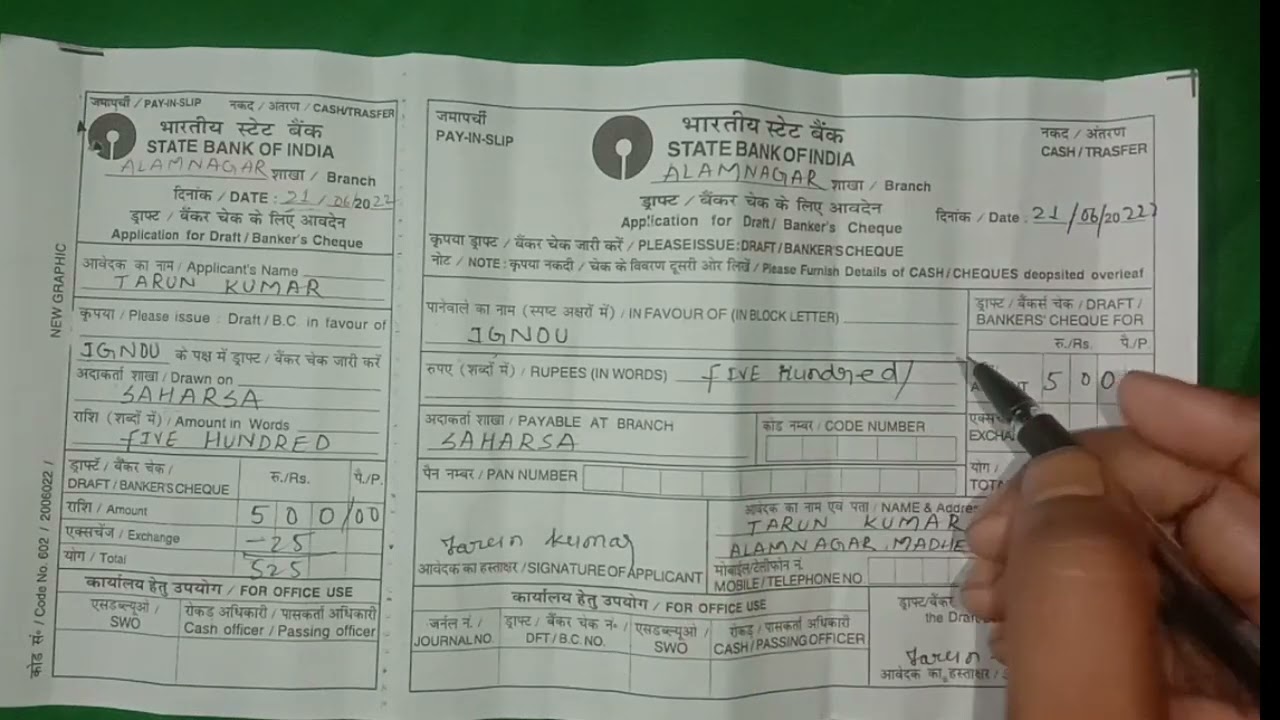 जमापर्ची / PAY-IN-SLIP नकद / अंतरण / CASH/TRASFER
भारतीय स्टेट बैंक
STATE BANK OF INDIA
ALAMNAGAR शाखा / Branch
दिनांक / DATE : 21/06/2022
ड्राफ्ट / बैंकर चेक के लिए आवदेन
Application for Draft / Banker's Cheque
आवेदक का नाम / Applicant's Name
TARUN KUMAR
कृपया / Please issue : Draft / B.C. in favour of
IGNOU के पक्ष में ड्राफ्ट / बैंकर चेक जारी करें
अदाकर्ता शाखा / Drawn on
SAHARSA
राशि (शब्दों में) / Amount in Words
FIVE HUNDRED
ड्राफ्ट / बैंकर चेक / रु./Rs. पै./P.
DRAFT / BANKER'S CHEQUE
राशि / Amount 500/00
एक्सचेंज / Exchange -25
योग / Total 525
कार्यालय हेतु उपयोग / FOR OFFICE USE
एसडब्ल्यूओ / रोकड़ अधिकारी / पासकर्ता अधिकारी
SWO Cash officer / Passing officer
NEW GRAPHIC
कोड सं० / Code No. 602 / 2006022 /
जमापर्ची
PAY-IN-SLIP
भारतीय स्टेट बैंक
STATE BANK OF INDIA
नकद / अंतरण
CASH / TRASFER
ALAMNAGAR शाखा / Branch
ड्राफ्ट / बैंकर चेक के लिए आवदेन
Application for Draft / Banker's Cheque
दिनांक / Date : 21/06/2022
कृपया ड्राफ्ट / बैंकर चेक जारी करें / PLEASE ISSUE : DRAFT / BANKER'S CHEQUE
नोट / NOTE : कृपया नकदी / चेक के विवरण दूसरी ओर लिखें / Please Furnish Details of CASH / CHEQUES deopsited overleaf
पानेवाले का नाम (स्पष्ट अक्षरों में) / IN FAVOUR OF (IN BLOCK LETTER)
IGNOU
ड्राफ्ट / बैंकर्स चेक / DRAFT /
BANKERS' CHEQUE FOR
रु./Rs. पै./P.
500
रुपए (शब्दों में) / RUPEES (IN WORDS) FIVE Hundred/
अदाकर्ता शाखा / PAYABLE AT BRANCH
SAHARSA
कोड नम्बर / CODE NUMBER
पैन नम्बर / PAN NUMBER
योग /
Tarun Kumar
आवेदक का हस्ताक्षर / SIGNATURE OF APPLICANT
आवेदक का नाम एवं पता / NAME & Addre
TARUN KUMAR
ALAMNAGAR, MADHE
मोबाईल/टेलीफोन नं.
MOBILE / TELEPHONE NO
कार्यालय हेतु उपयोग / FOR OFFICE USE
जर्नल नं. / ड्राफ्ट / बैंकर चेक नं० / एसडब्ल्यूओ / रोकड़ / पासकर्ता अधिकारी
JOURNAL NO. DFT / B.C. NO. SWO CASH / PASSING OFFICER
ड्राफ्ट/बैंकर
the Draft
Tarun
आवेदक का हस्ताक्षर /